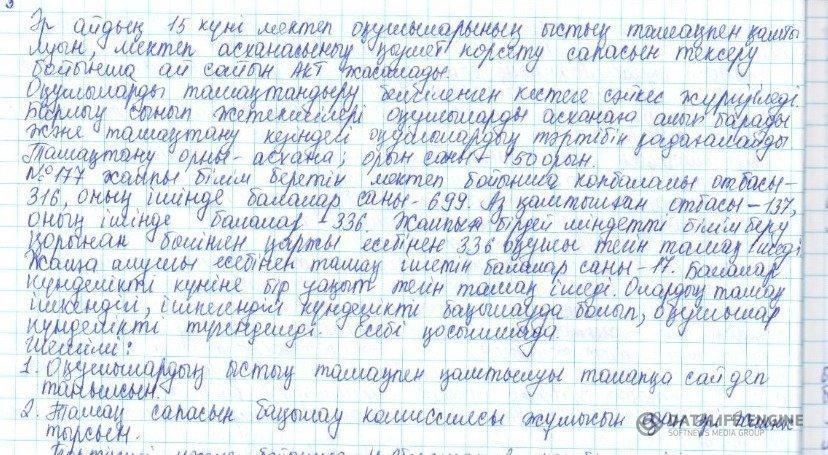 Әр айдың 15 күні мектеп оқушыларының ыстық тамақпен қамты
луын, мектеп асханасының қызмет көрсету сапасын тексеру
бойынша ай сайын АКТ жасалады.
Оқушыларды тамақтандыру белгіленген кестеге сәйкес жүргізіледі.
Барлық сынып жетекшілері оқушыларды асханаға алып барады
және тамақтану кезіндегі оқушылардың тәртібін қадағалайды
Тамақтану орны - асхана, орын саны - 150 орын.
№177 жалпы білім беретін мектеп бойынша көпбалалы отбасы -
316, оның ішінде балалар саны - 699. Аз қамтылған отбасы - 137,
оның ішінде балалар - 336. Жалпыға бірдей міндетті білім беру
қорынан бөлінген қаржы есебінен 336 оқушы тегін тамақ ішеді
Жаңа алушы есебінен тамақ ішетін балалар саны - 17. Балалар
күнделікті күніне бір уақыт тегін тамақ ішеді. Олардың тамақ
ішкендігі, ішпегендігі күнделікті бақылауда болып, оқушылар
күнделікті түгенделеді. Есебі қосымшада.
Шешімі:
1. Оқушылардың ыстық тамақпен қамтылуы талапқа сай деп
танылсын.
2. Тамақ сапасын бақылау комиссиясы жұмысын
тырсын.
DATALIFE ENGINE
SOFTNEWS MEDIA GROUP